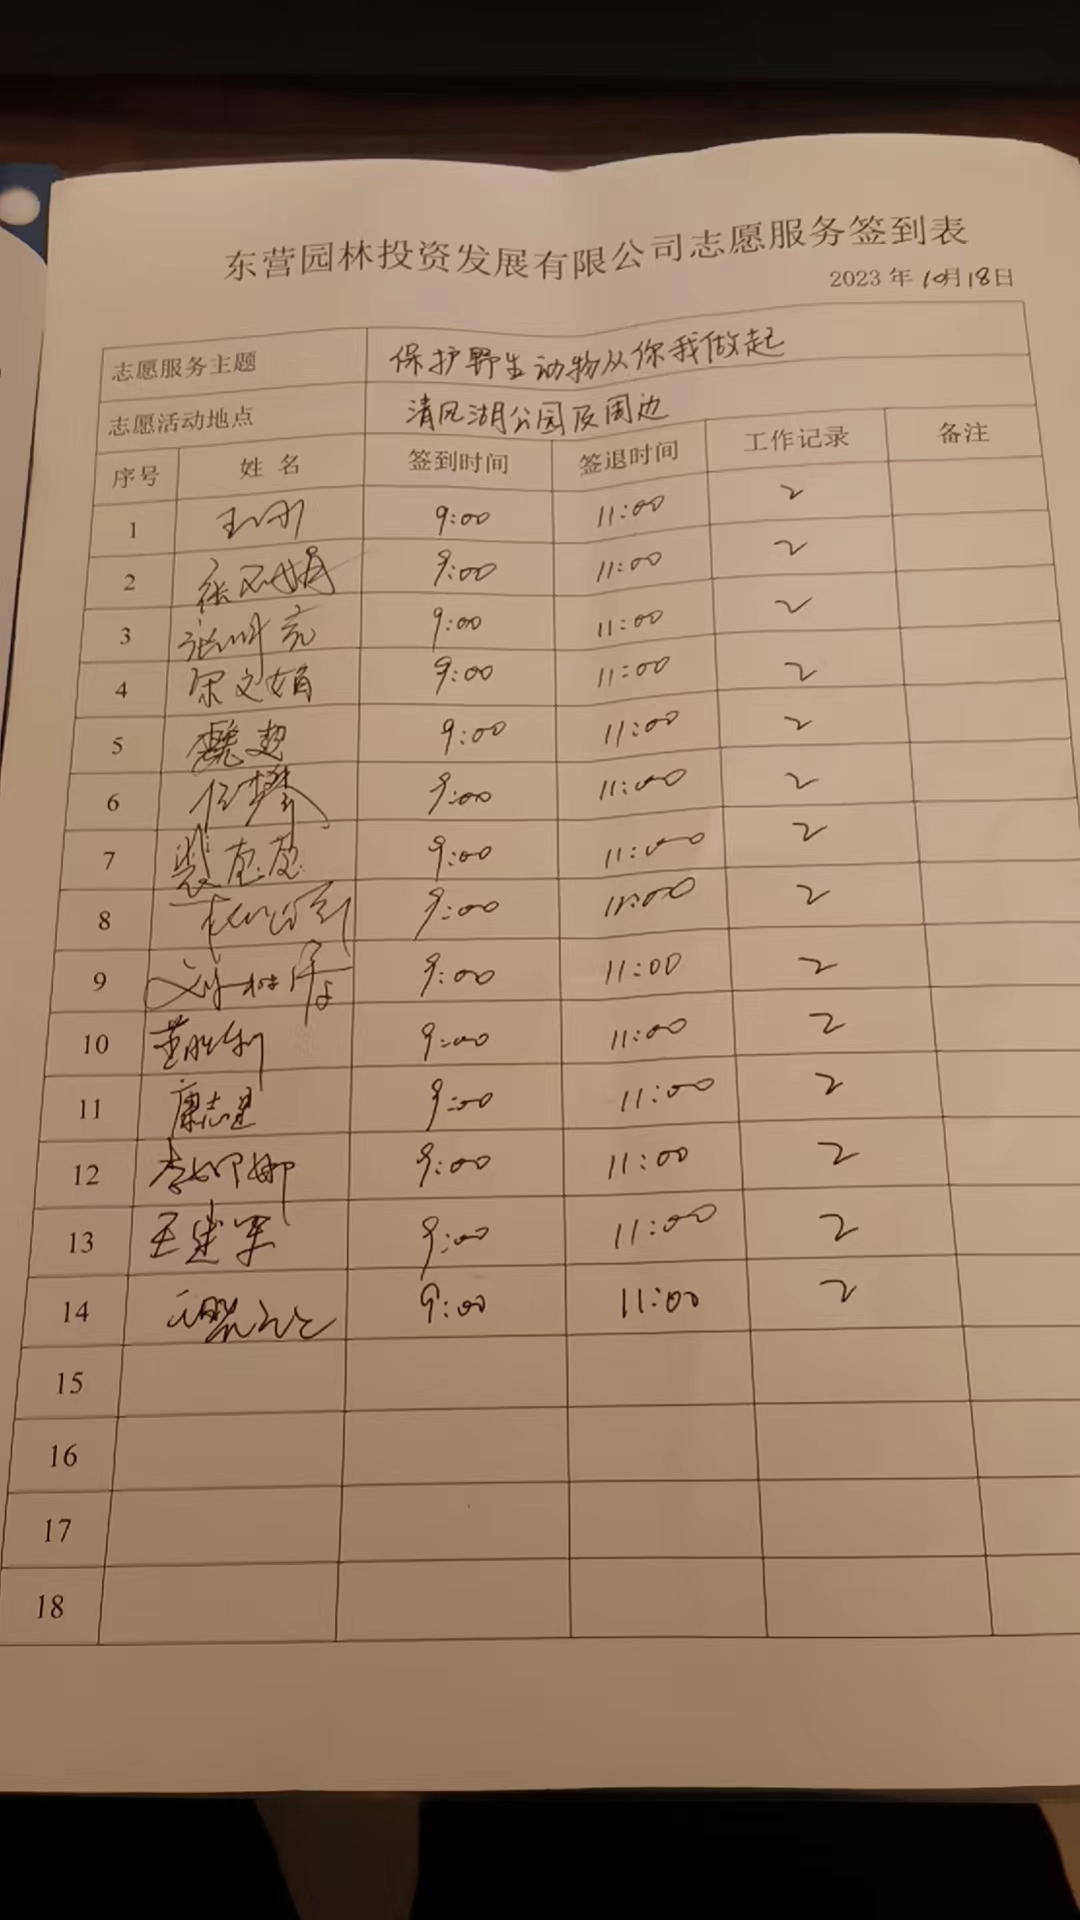 东营园林投资发展有限公司志愿服务签到表
2023 年 10月 18日
志愿服务主题 保护野生动物从你我做起
志愿活动地点 清风湖公园及周边
序号 姓 名 签到时间 签退时间 工作记录 备注
1 9:00 11:00 2
2 9:00 11:00 2
3 9:00 11:00 2
4 9:00 11:00 2
5 9:00 11:00 2
6 9:00 11:00 2
7 9:00 11:00 2
8 9:00 11:00 2
9 9:00 11:00 2
10 董胜利 9:00 11:00 2
11 康志星 9:00 11:00 2
12 李娜娜 9:00 11:00 2
13 王建军 9:00 11:00 2
14 9:00 11:00 2
15
16
17
18